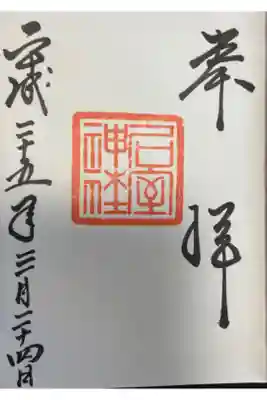 奉拝
石室
神社
平成二十五年三月二十四日